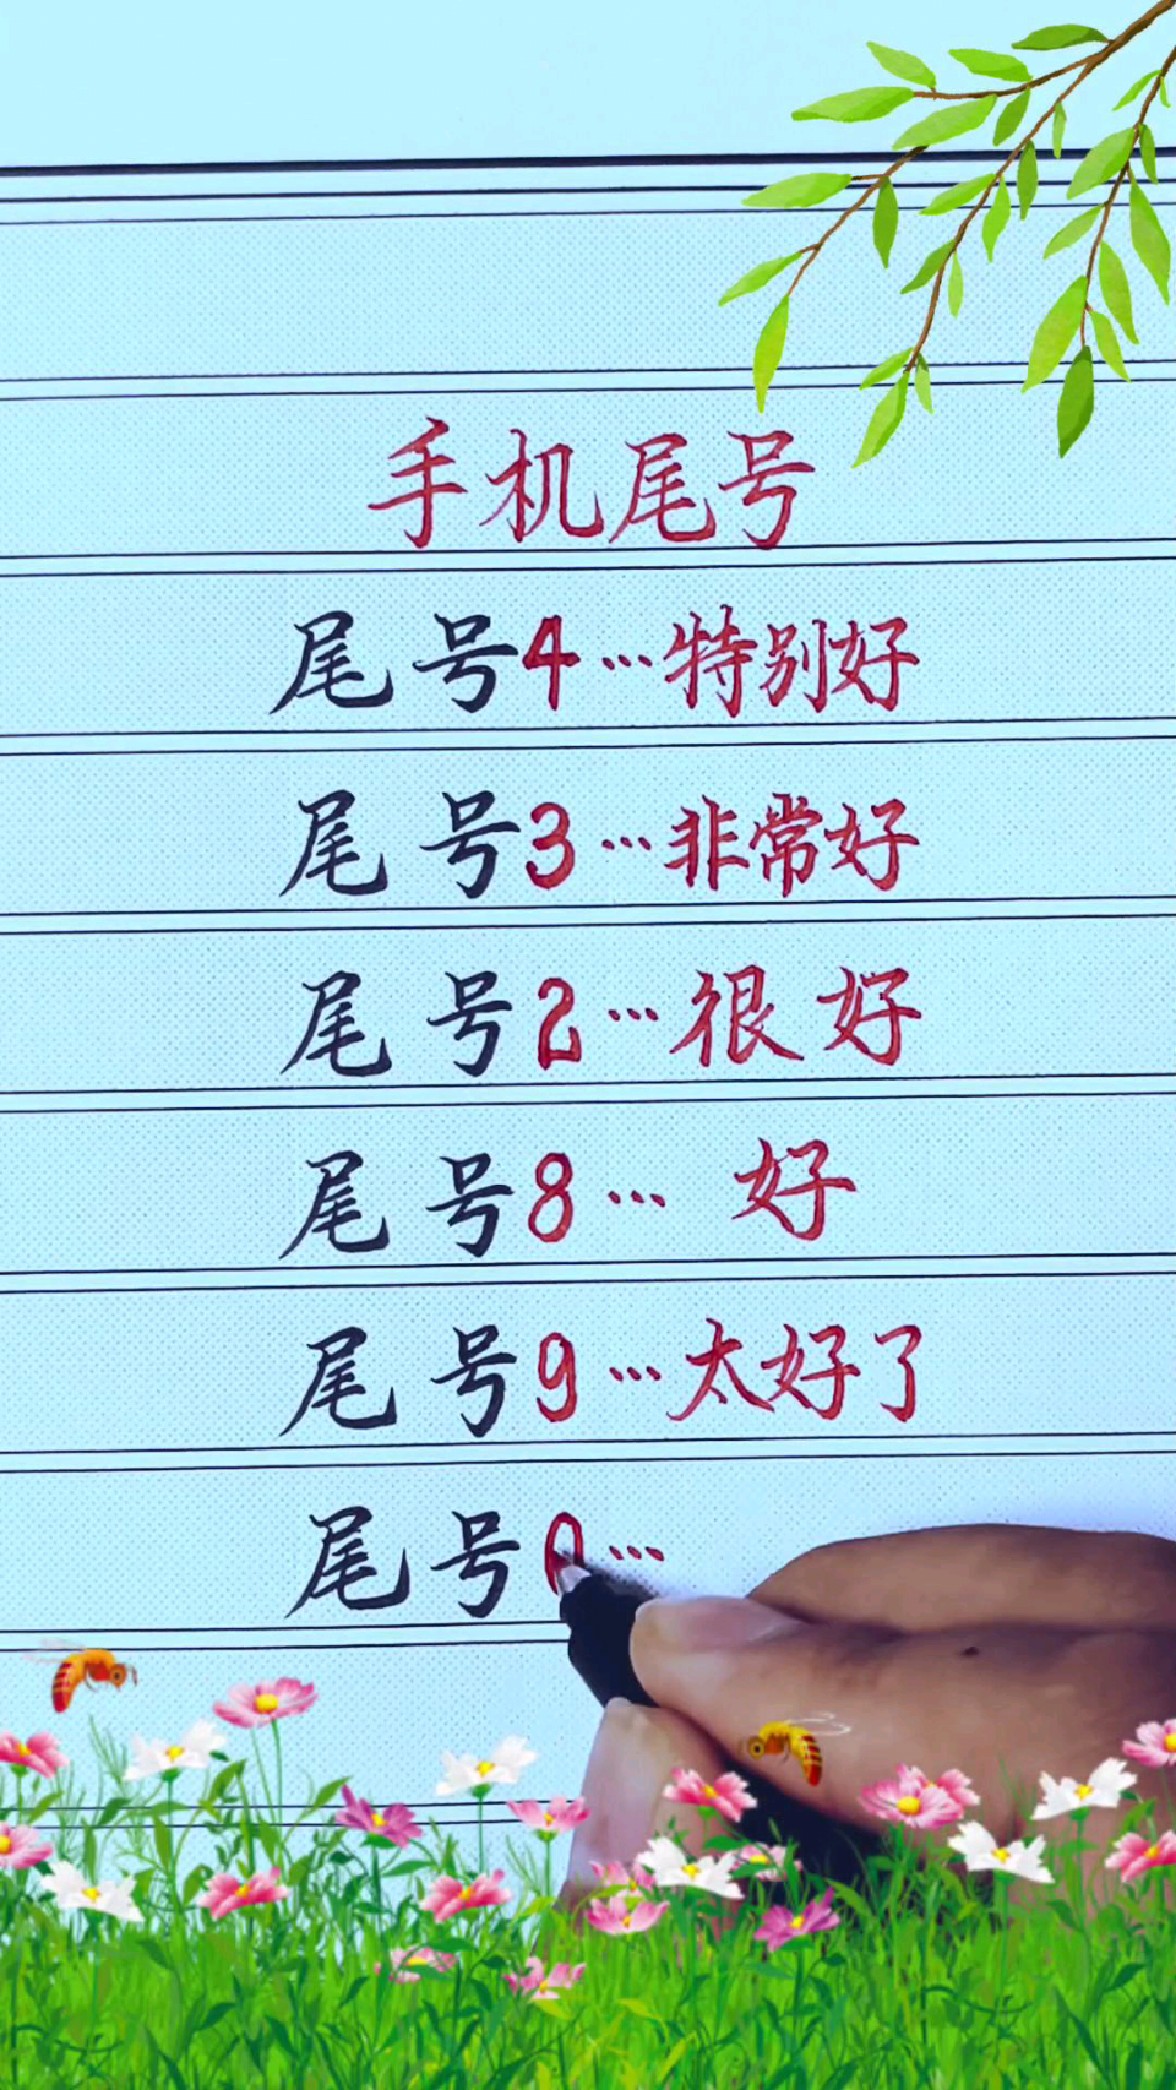 手机尾号
尾号4…特别好
尾号3…非常好
尾号2…很好
尾号8…好
尾号9…太好了
尾号0…